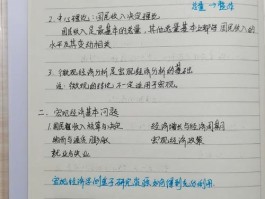 总量 → 整体
2. 中心理论：国民收入决定理论
国民收入是最基本的总量，其他总量基本上都与国民收入的
水平及其变动相关
3. 微观经济分析是宏观经济分析的基础
注：微观的结论不一定适用于宏观。
二、宏观经济基本问题
1. 国民收入核算与决定 经济增长与经济周期
物价与通货膨胀 宏观经济政策
就业与失业
宏观经济学问题于研究资源如何得到充分利用